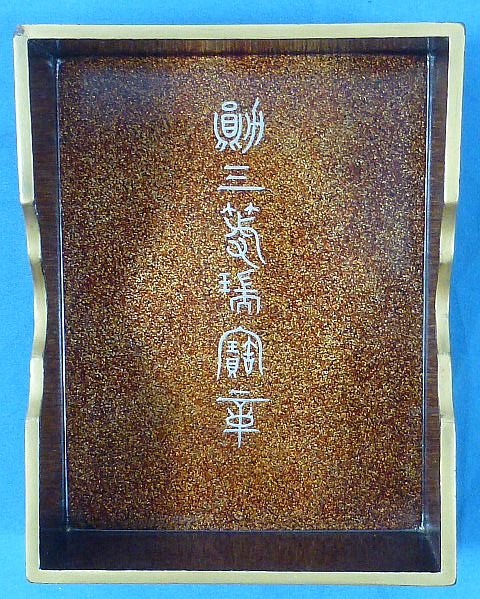 勲三等瑞寶章